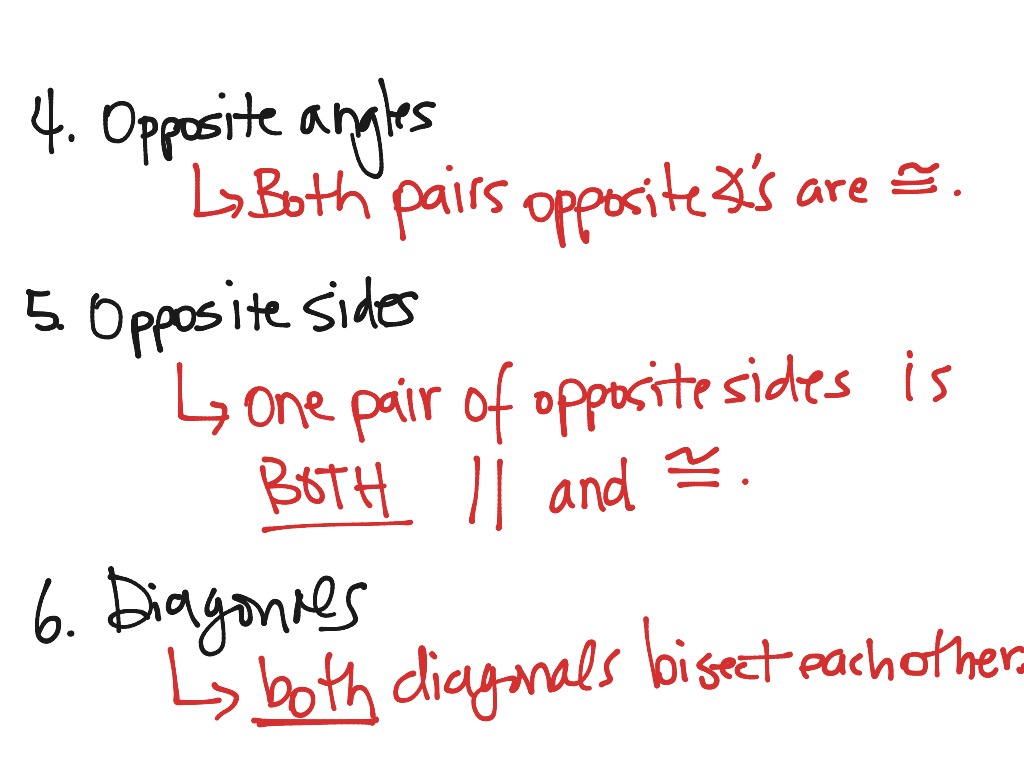 4. Opposite angles
↳ Both pairs opposite ∡'s are ≅.
5. Opposite sides
↳ one pair of opposite sides is
BOTH || and ≅.
6. Diagonals
↳ both diagonals bisect each other.